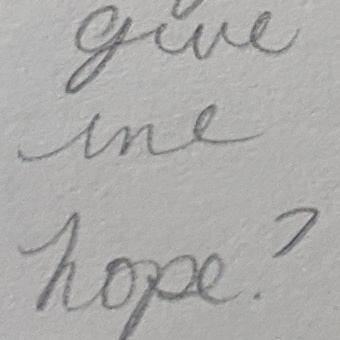 give
me
hope?